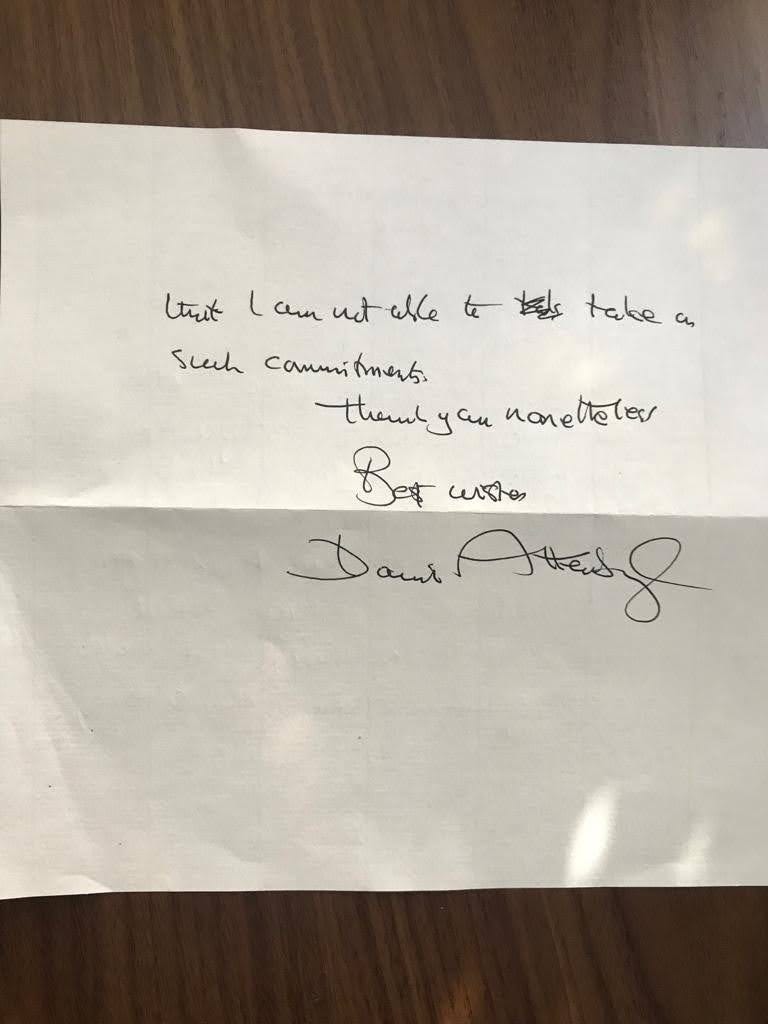 that I am not able to take on
such commitments.
Thank you nonetheless
Best wishes
David Attenborough